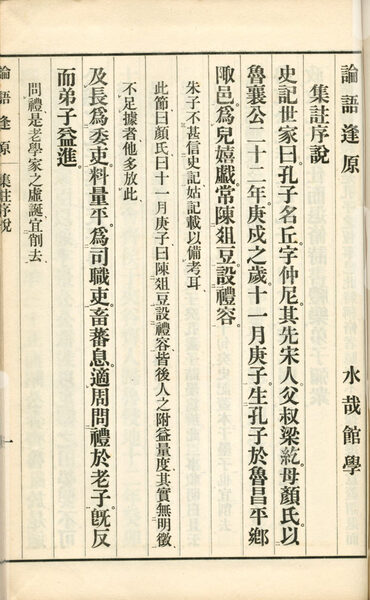 論語逢原　水哉館學
集註序說
史記世家曰孔子名丘字仲尼其先宋人父叔梁紇母顏氏以
魯襄公二十二年庚戌之歲十一月庚子生孔子於魯昌平鄉
陬邑爲兒嬉戲常陳俎豆設禮容
朱子不甚信史記姑記載以備考耳
此節曰顏氏曰十一月庚子曰陳俎豆設禮容皆後人之附益量度其實無明徵
不足據者他多放此
及長爲委吏料量平爲司職吏畜蕃息適周問禮於老子旣反
而弟子益進
問禮是老學家之虛誕宜削去
論語逢原　集註序說　一